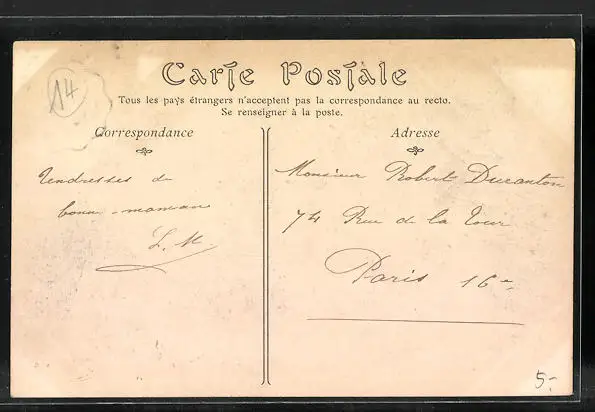 14
Carte Postale
Tous les pays étrangers n'acceptent pas la correspondance au recto.
Se renseigner à la poste.
Correspondance
Tendresses de
bonne-maman
L. M.
Adresse
Monsieur Robert Duranton
74 Rue de la Tour
Paris 16e
5-